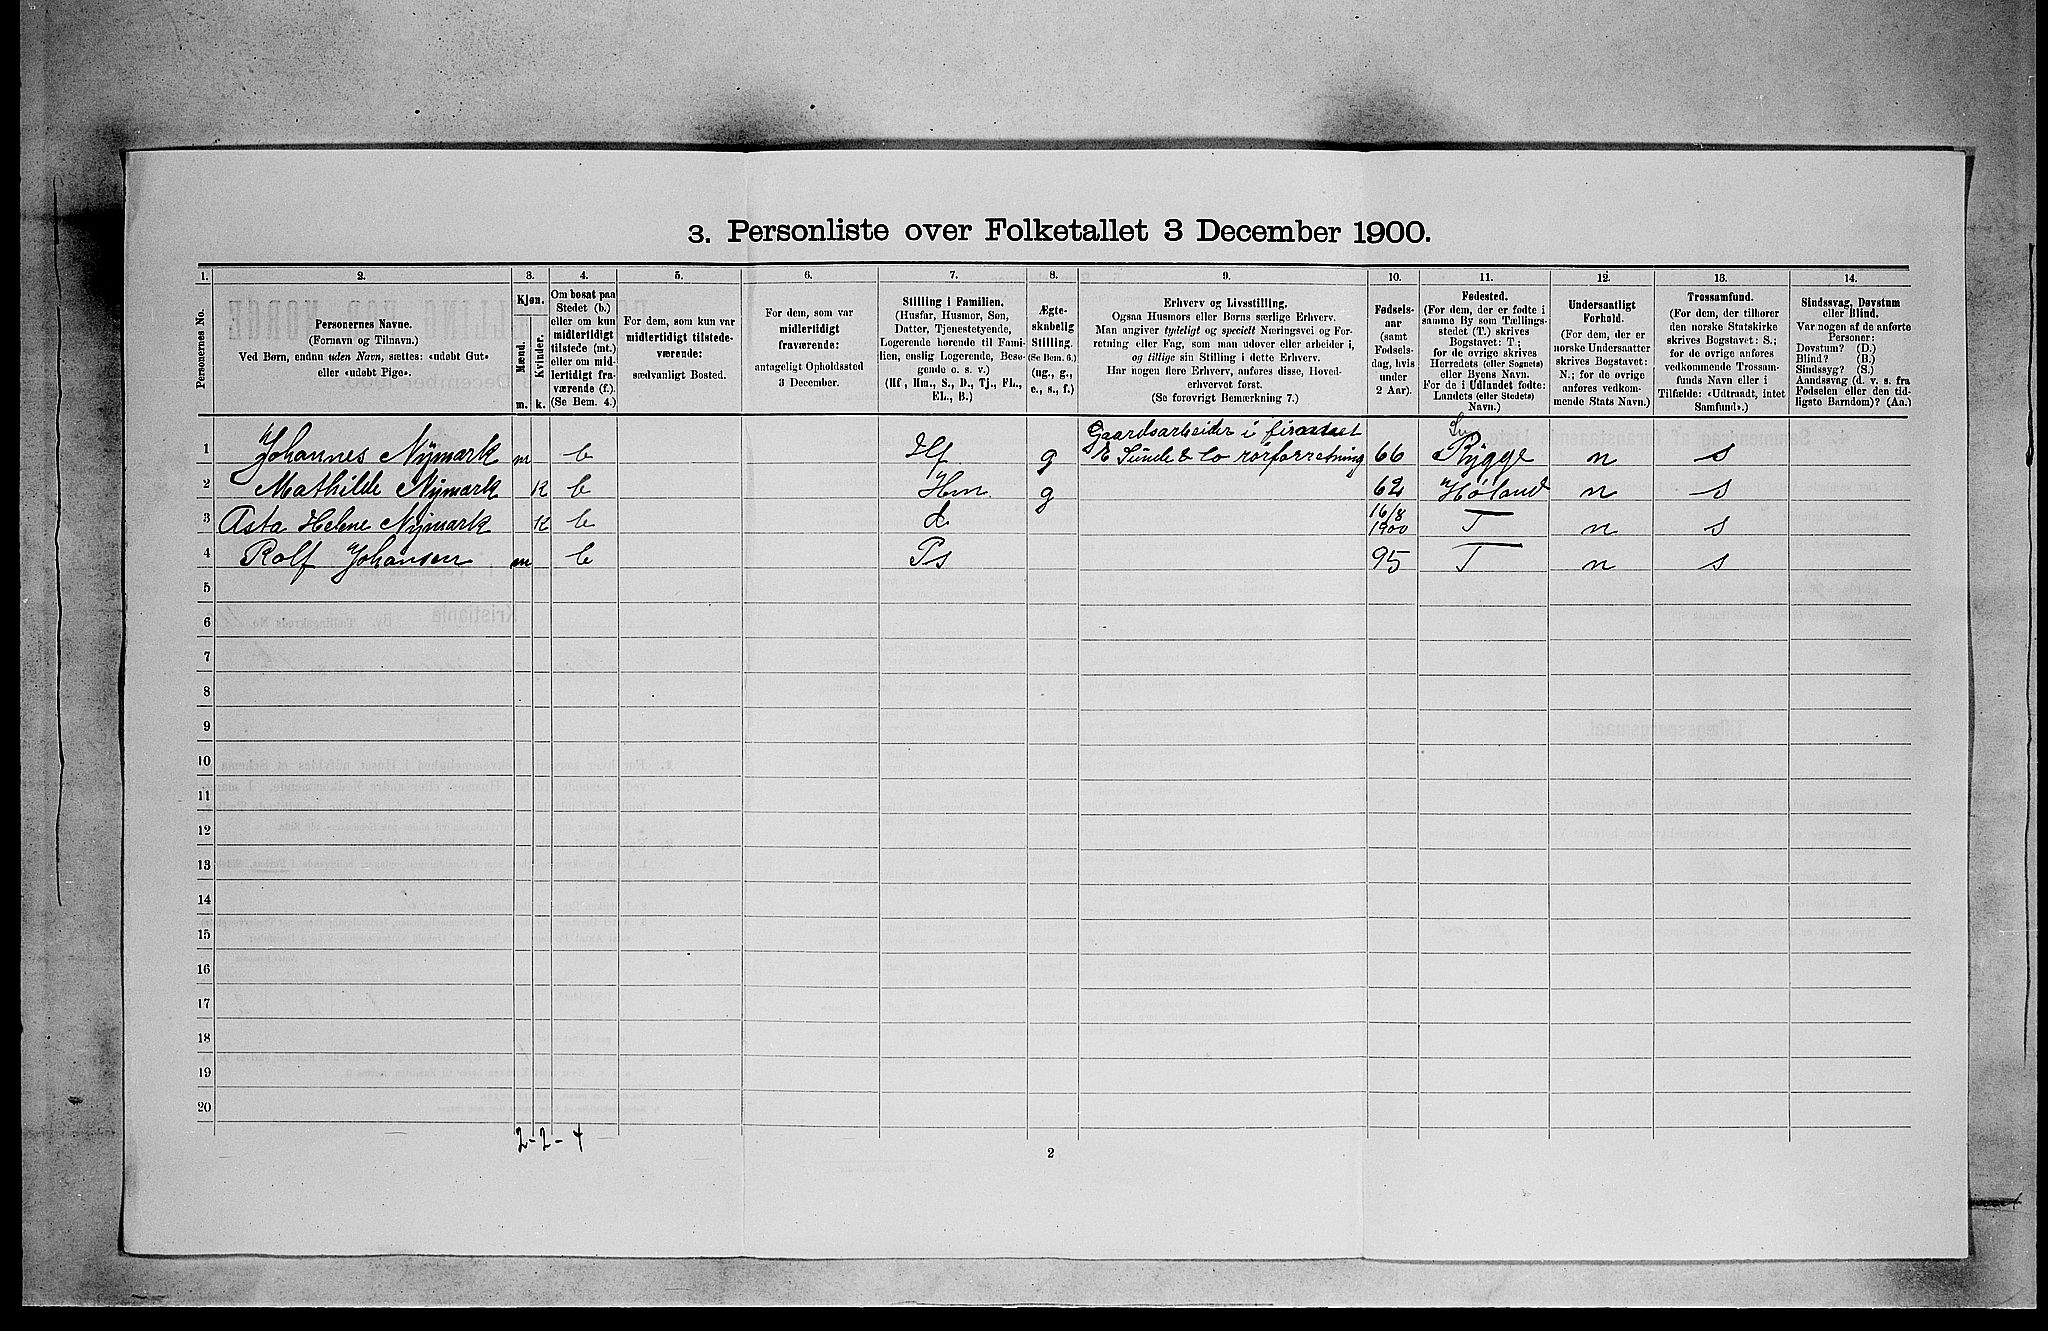 3. Personliste over Folketallet 3 December 1900.
1. 2. 3. 4. 5. 6. 7. 8. 9. 10. 11. 12. 13. 14.
Personernes No.
Personernes Navne.
(Fornavn og Tilnavn.)
Ved Børn, endnu uden Navn, sættes: «udøbt Gut»
eller «udøbt Pige».
Kjøn.
Mænd.
Kvinder.
m. k.
Om bosat paa
Stedet (b.)
eller om kun
midlertidigt
tilstede (mt.)
eller om mid-
lertidigt fra-
værende (f.).
(Se Bem. 4.)
For dem, som kun var
midlertidigt tilstede-
værende:
sædvanligt Bosted.
For dem, som var
midlertidigt
fraværende:
antageligt Opholdssted
3 December.
Stilling i Familien.
(Husfar, Husmor, Søn,
Datter, Tjenestetyende,
Logerende hørende til Fami-
lien, enslig Logerende, Besø-
gende o. s. v.)
(Hf., Hm., S., D., Tj., FL.,
EL., B.)
Ægte-
skabelig
Stilling.
(Se Bem. 6.)
(ug., g.,
e., s., f.)
Erhverv og Livsstilling.
Ogsaa Husmors eller Børns særlige Erhverv.
Man angiver tydeligt og specielt Næringsvei og For-
retning eller Fag, som man udøver eller arbeider i,
og tillige sin Stilling i dette Erhverv.
Har nogen flere Erhverv, anføres disse, Hoved-
erhvervet først.
(Se forøvrigt Bemærkning 7.)
Fødsels-
aar
(samt
Fødsels-
dag, hvis
under
2 Aar).
Fødested.
(For dem, der er fødte i
samme By som Tællings-
stedet (T.) skrives
Bogstavet: T.;
for de øvrige skrives
Herredets (eller Sognets)
eller Byens Navn.
For de i Udlandet fødte:
Landets (eller Stedets)
Navn.)
Undersaatligt
Forhold.
(For dem, der er
norske Undersaatter
skrives Bogstavet:
N.; for de øvrige
anføres vedkom-
mende Stats Navn.)
Trossamfund.
(For dem, der tilhører
den norske Statskirke
skrives Bogstavet: S.;
for de øvrige anføres
vedkommende Trossam-
funds Navn eller i
Tilfælde: «Udtraadt, intet
Samfund».)
Sindssvag, Døvstum
eller Blind.
Var nogen af de anførte
Personer:
Døvstum? (D.)
Blind? (B.)
Sindssyg? (S.)
Aandssvag (d. v. s. fra
Fødselen eller den tid-
ligste Barndom)? (Aa.)
1 Johannes Nymark m b Hf g Gaardsarbeider i
E Sunde & Co rørforretning 66 Rygge n s
2 Mathilde Nymark K b Hm g 62 Høland n s
3 Asta Helene Nymark K b d 16/8
1900 T n s
4 Rolf Johansen m b Ps 95 T n s
5
6
7
8
9
10
11
12
13
14
15
16
17
18
19
20
2-2-4
2